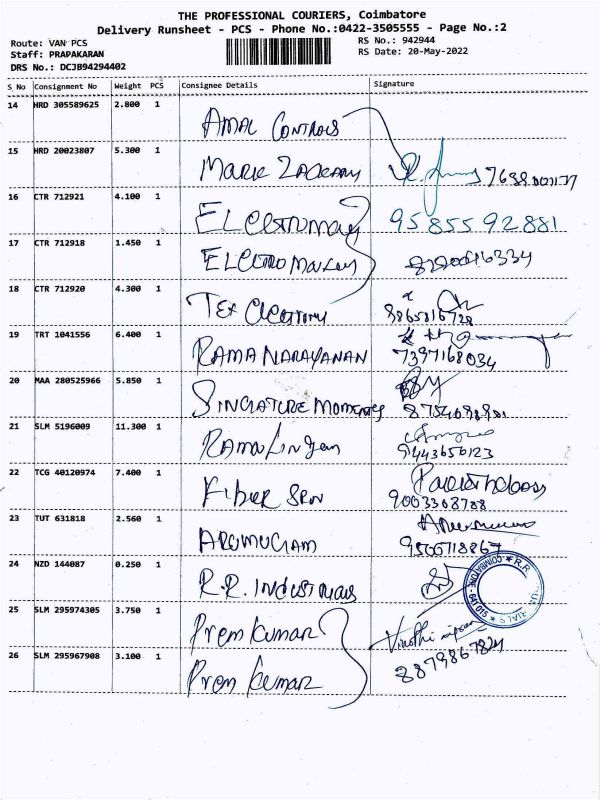 THE PROFESSIONAL COURIERS, Coimbatore
Delivery Runsheet - PCS - Phone No.:0422-3505555 - Page No.:2
Route: VAN PCS RS No.: 942944
Staff: PRAPAKARAN RS Date: 20-May-2022
DRS No.: DCJB94294402
S No Consignment No Weight PCS Consignee Details Signature
14 HRD 305589625 2.800 1 AMAL CONTROLS
15 HRD 20023807 5.300 1 MARK ZACKARY
16 CTR 712921 4.100 1 9585592881
17 CTR 712918 1.450 1
18 CTR 712920 4.300 1 8865816728
19 TRT 1041556 6.400 1 RAMA NARAYANAN 7397168034
20 MAA 280525966 5.850 1 SINGATURE MOMENTS
21 SLM 5196009 11.300 1 RAMALINGAM 9443656123
22 TCG 40120974 7.400 1 FIBER SPUN 9003368788
23 TUT 631818 2.560 1 ARUMUGAM 9500718867
24 NZD 144087 0.250 1 R.R. INDUSTRIALS
25 SLM 295974305 3.750 1 Prem kumar
26 SLM 295967908 3.100 1 Prem kumar 8879867824